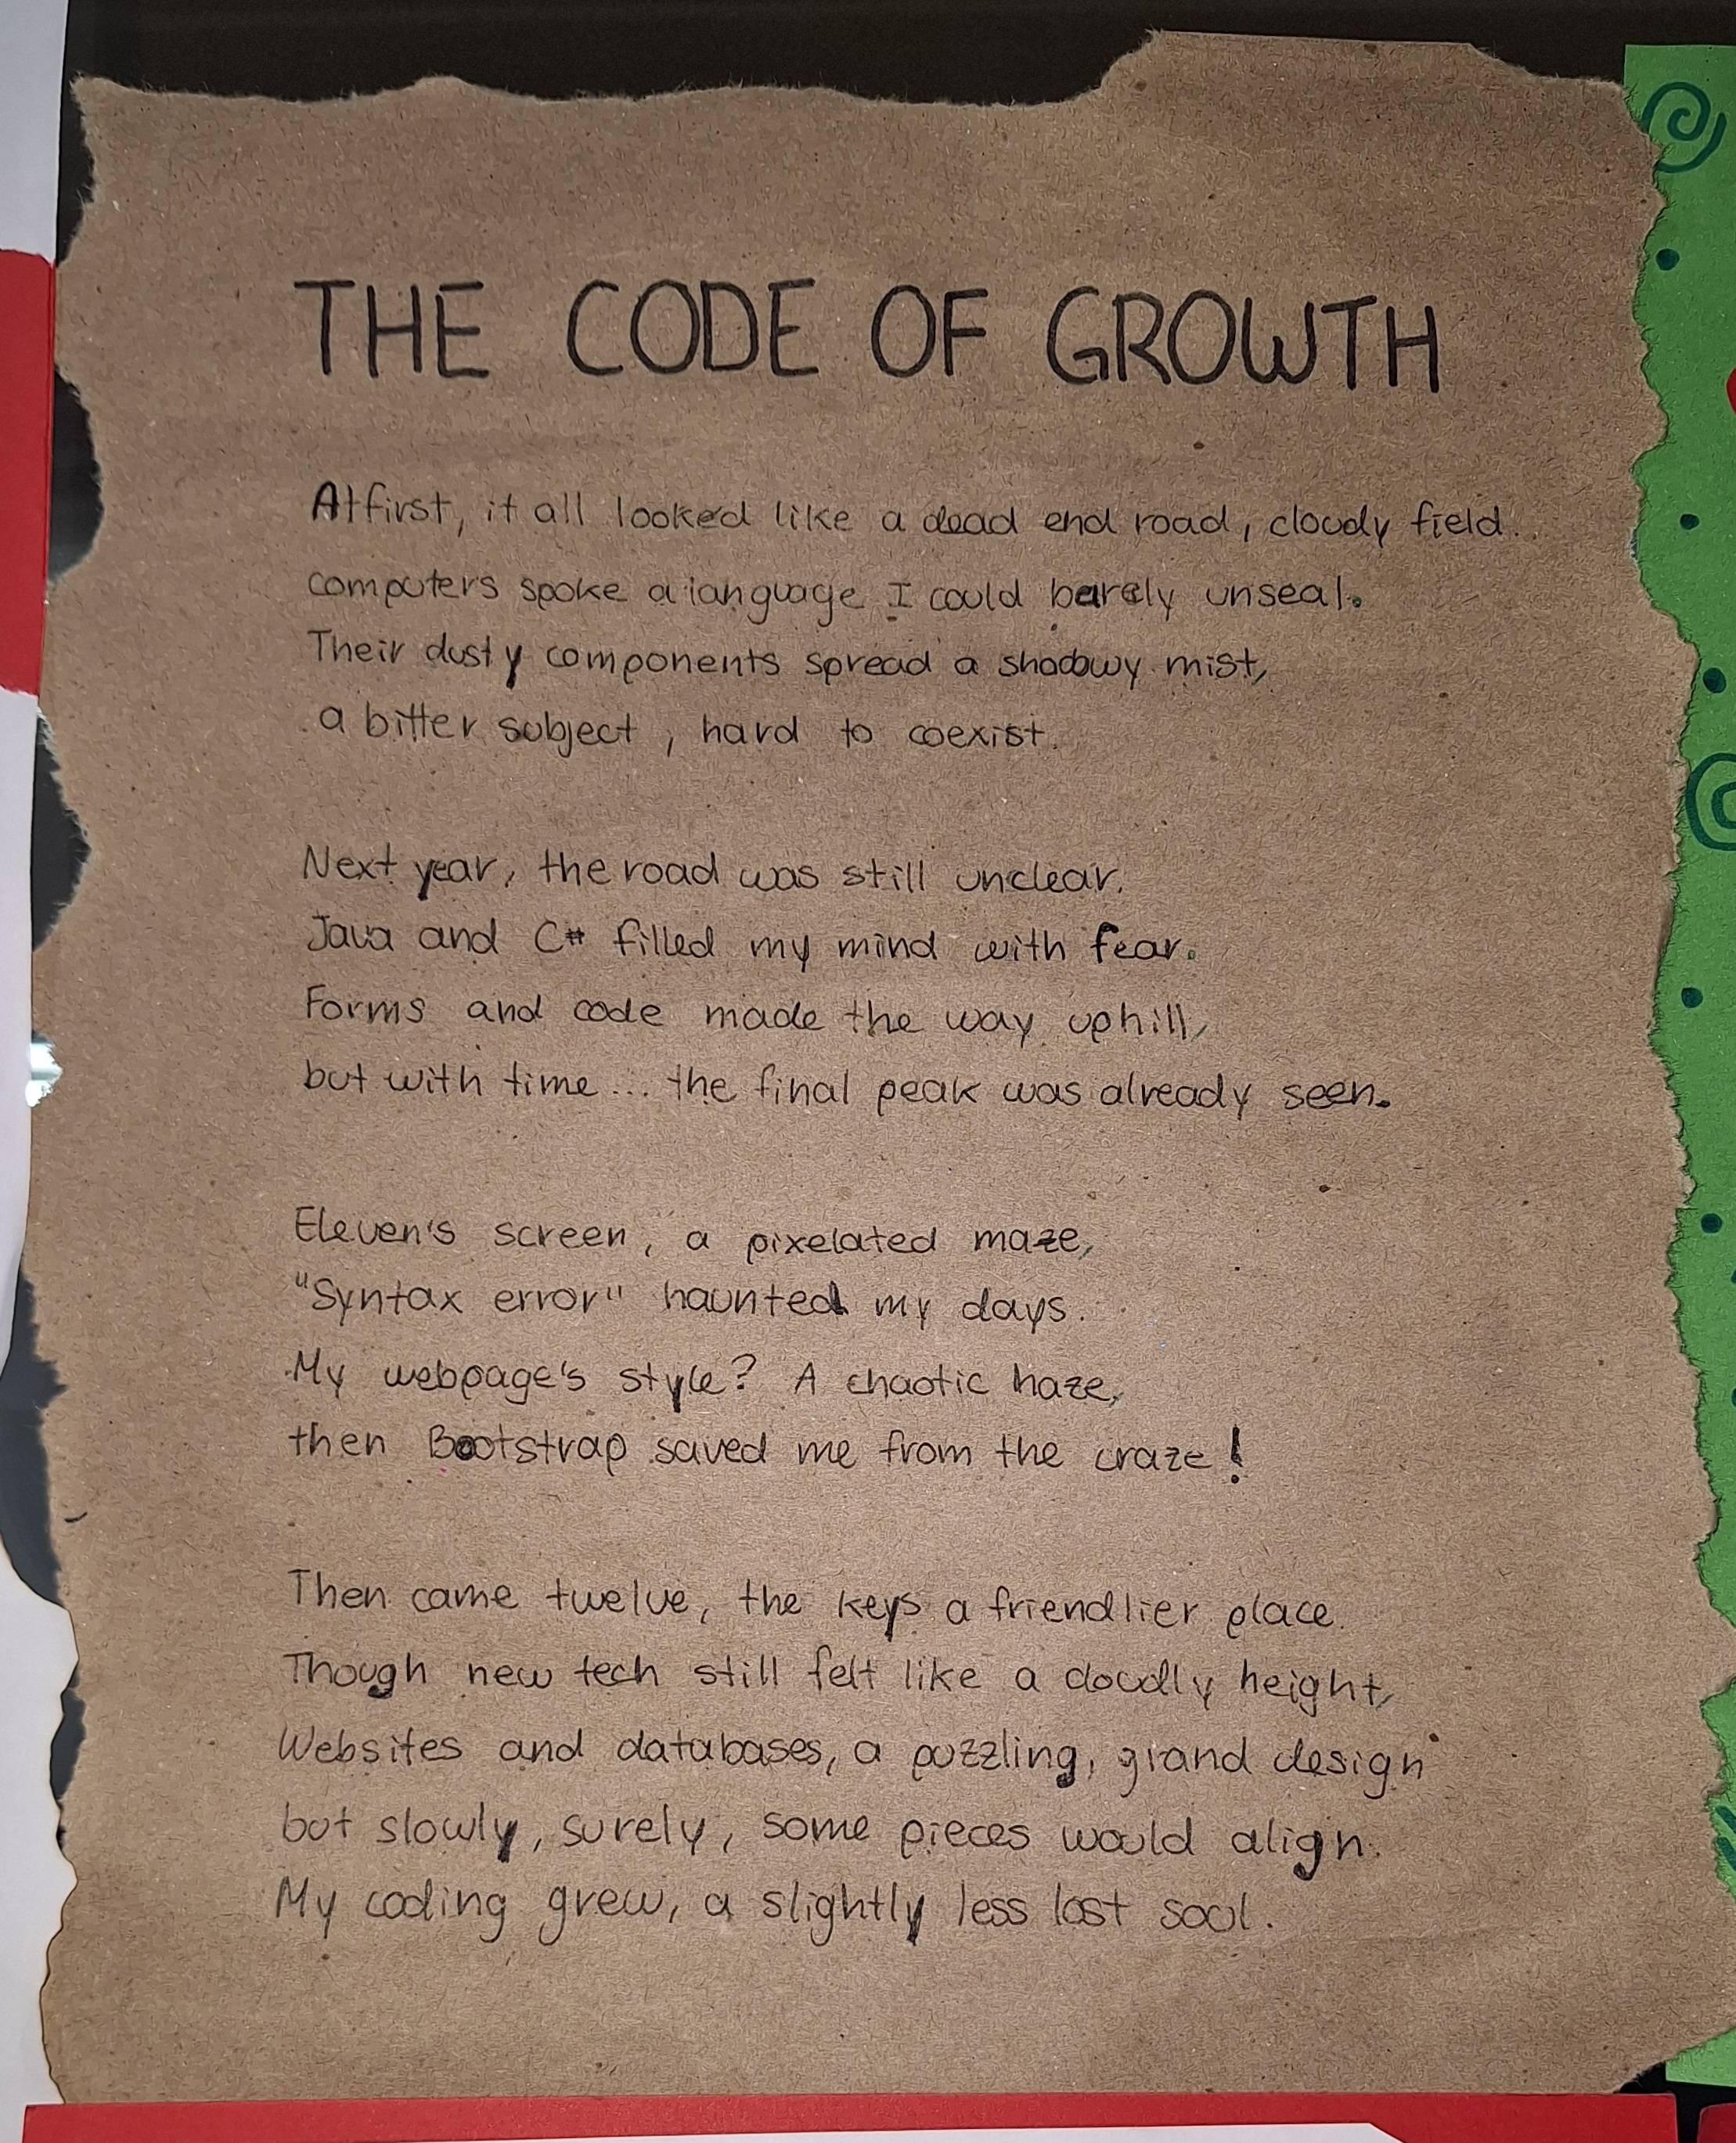 THE CODE OF GROWTH
At first, it all looked like a dead end road, cloudy field.
computers spoke a language I could barely unseal.
Their dusty components spread a shadowy mist,
a bitter subject, hard to coexist.
Next year, the road was still unclear.
Java and C# filled my mind with fear.
Forms and code made the way uphill,
but with time... the final peak was already seen.
Eleven's screen, a pixelated maze,
"Syntax error" haunted my days.
My webpage's style? A chaotic haze,
then Bootstrap saved me from the craze!
Then came twelve, the keys a friendlier place.
Though new tech still felt like a cloudly height,
Websites and databases, a puzzling, grand design
but slowly, surely, some pieces would align.
My coding grew, a slightly less lost soul.